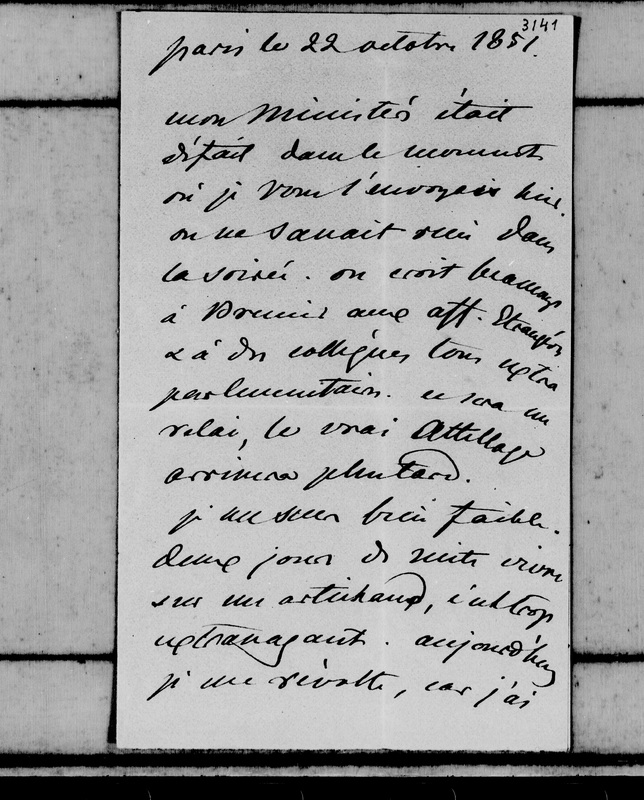 3141
paris le 22 octobre 1851.
mon Ministère était
défait dans le moment
où je vous l'envoyais hier.
on ne savait rien dans
la soirée. on croit beaucoup
à Brenier aux aff. Etrangères
& à des collègues tous extra
parlementaires. ce sera un
relai, le vrai Attellage
arrivera plus tard.
je me sens bien faible.
deux jours de suite vivre
sur un artichaud, c'est trop
extravagant. aujourd'hui
je me révolte, car j'ai